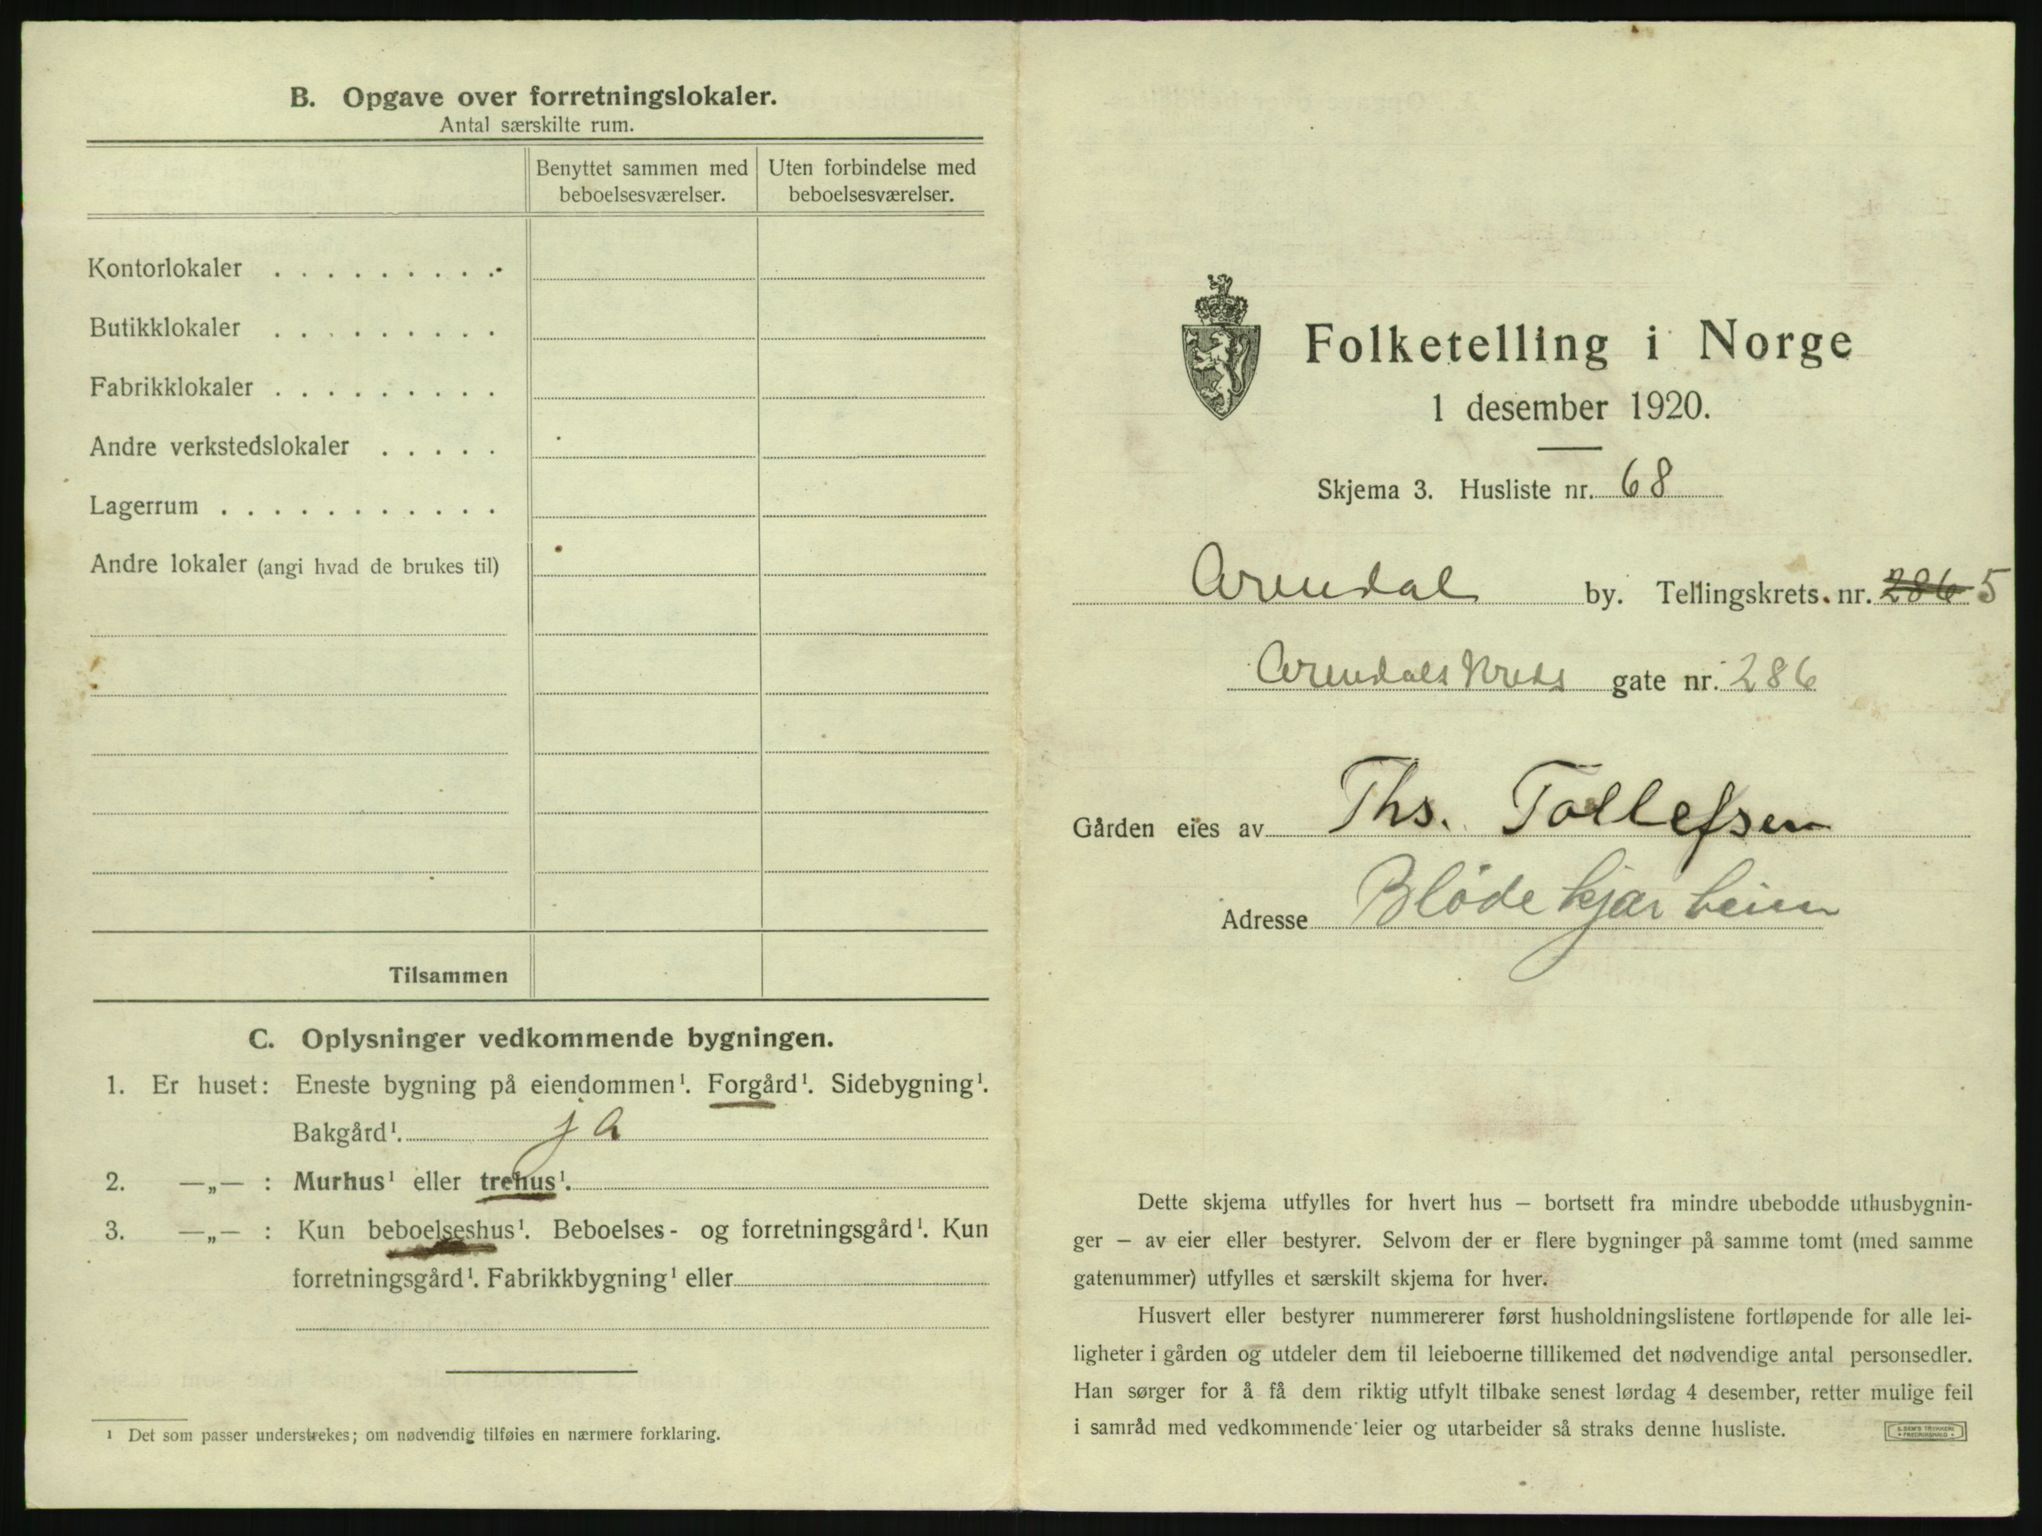 B. Opgave over forretningslokaler.
Antal særskilte rum.
Benyttet sammen med beboelsesværelser.
Uten forbindelse med beboelsesværelser.
Kontorlokaler . . . . . . . . .
Butikklokaler . . . . . . . . .
Fabrikklokaler . . . . . . . . .
Andre verkstedslokaler . . . . .
Lagerrum . . . . . . . . . . .
Andre lokaler (angi hvad de brukes til)
Tilsammen
C. Oplysninger vedkommende bygningen.
1. Er huset: Eneste bygning på eiendommen¹. Forgård¹. Sidebygning¹.
Bakgård¹. ja
2. —„— : Murhus¹ eller trehus¹.
3. —„— : Kun beboelseshus¹. Beboelses- og forretningsgård¹. Kun
forretningsgård¹. Fabrikkbygning¹ eller
¹ Det som passer understrekes; om nødvendig tilføies en nærmere forklaring.
Folketelling i Norge
1 desember 1920.
Skjema 3. Husliste nr. 68
Arendal by. Tellingskrets. nr. 286 5
Arendals Kreds gate nr. 286
Gården eies av Ths. Tollefsen
Adresse Blødekjær
Dette skjema utfylles for hvert hus – bortsett fra mindre ubebodde uthusbygnin-
ger – av eier eller bestyrer. Selvom der er flere bygninger på samme tomt (med samme
gatenummer) utfylles et særskilt skjema for hver.
Husvert eller bestyrer nummererer først husholdningslistene fortløpende for alle lei-
ligheter i gården og utdeler dem til leieboerne tillikemed det nødvendige antal personsedler.
Han sørger for å få dem riktig utfylt tilbake senest lørdag 4 desember, retter mulige feil
i samråd med vedkommende leier og utarbeider så straks denne husliste.